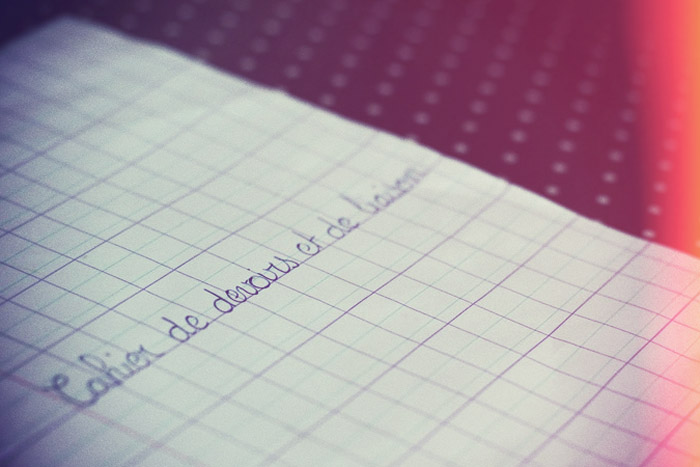 Cahier de devoirs et de liaison